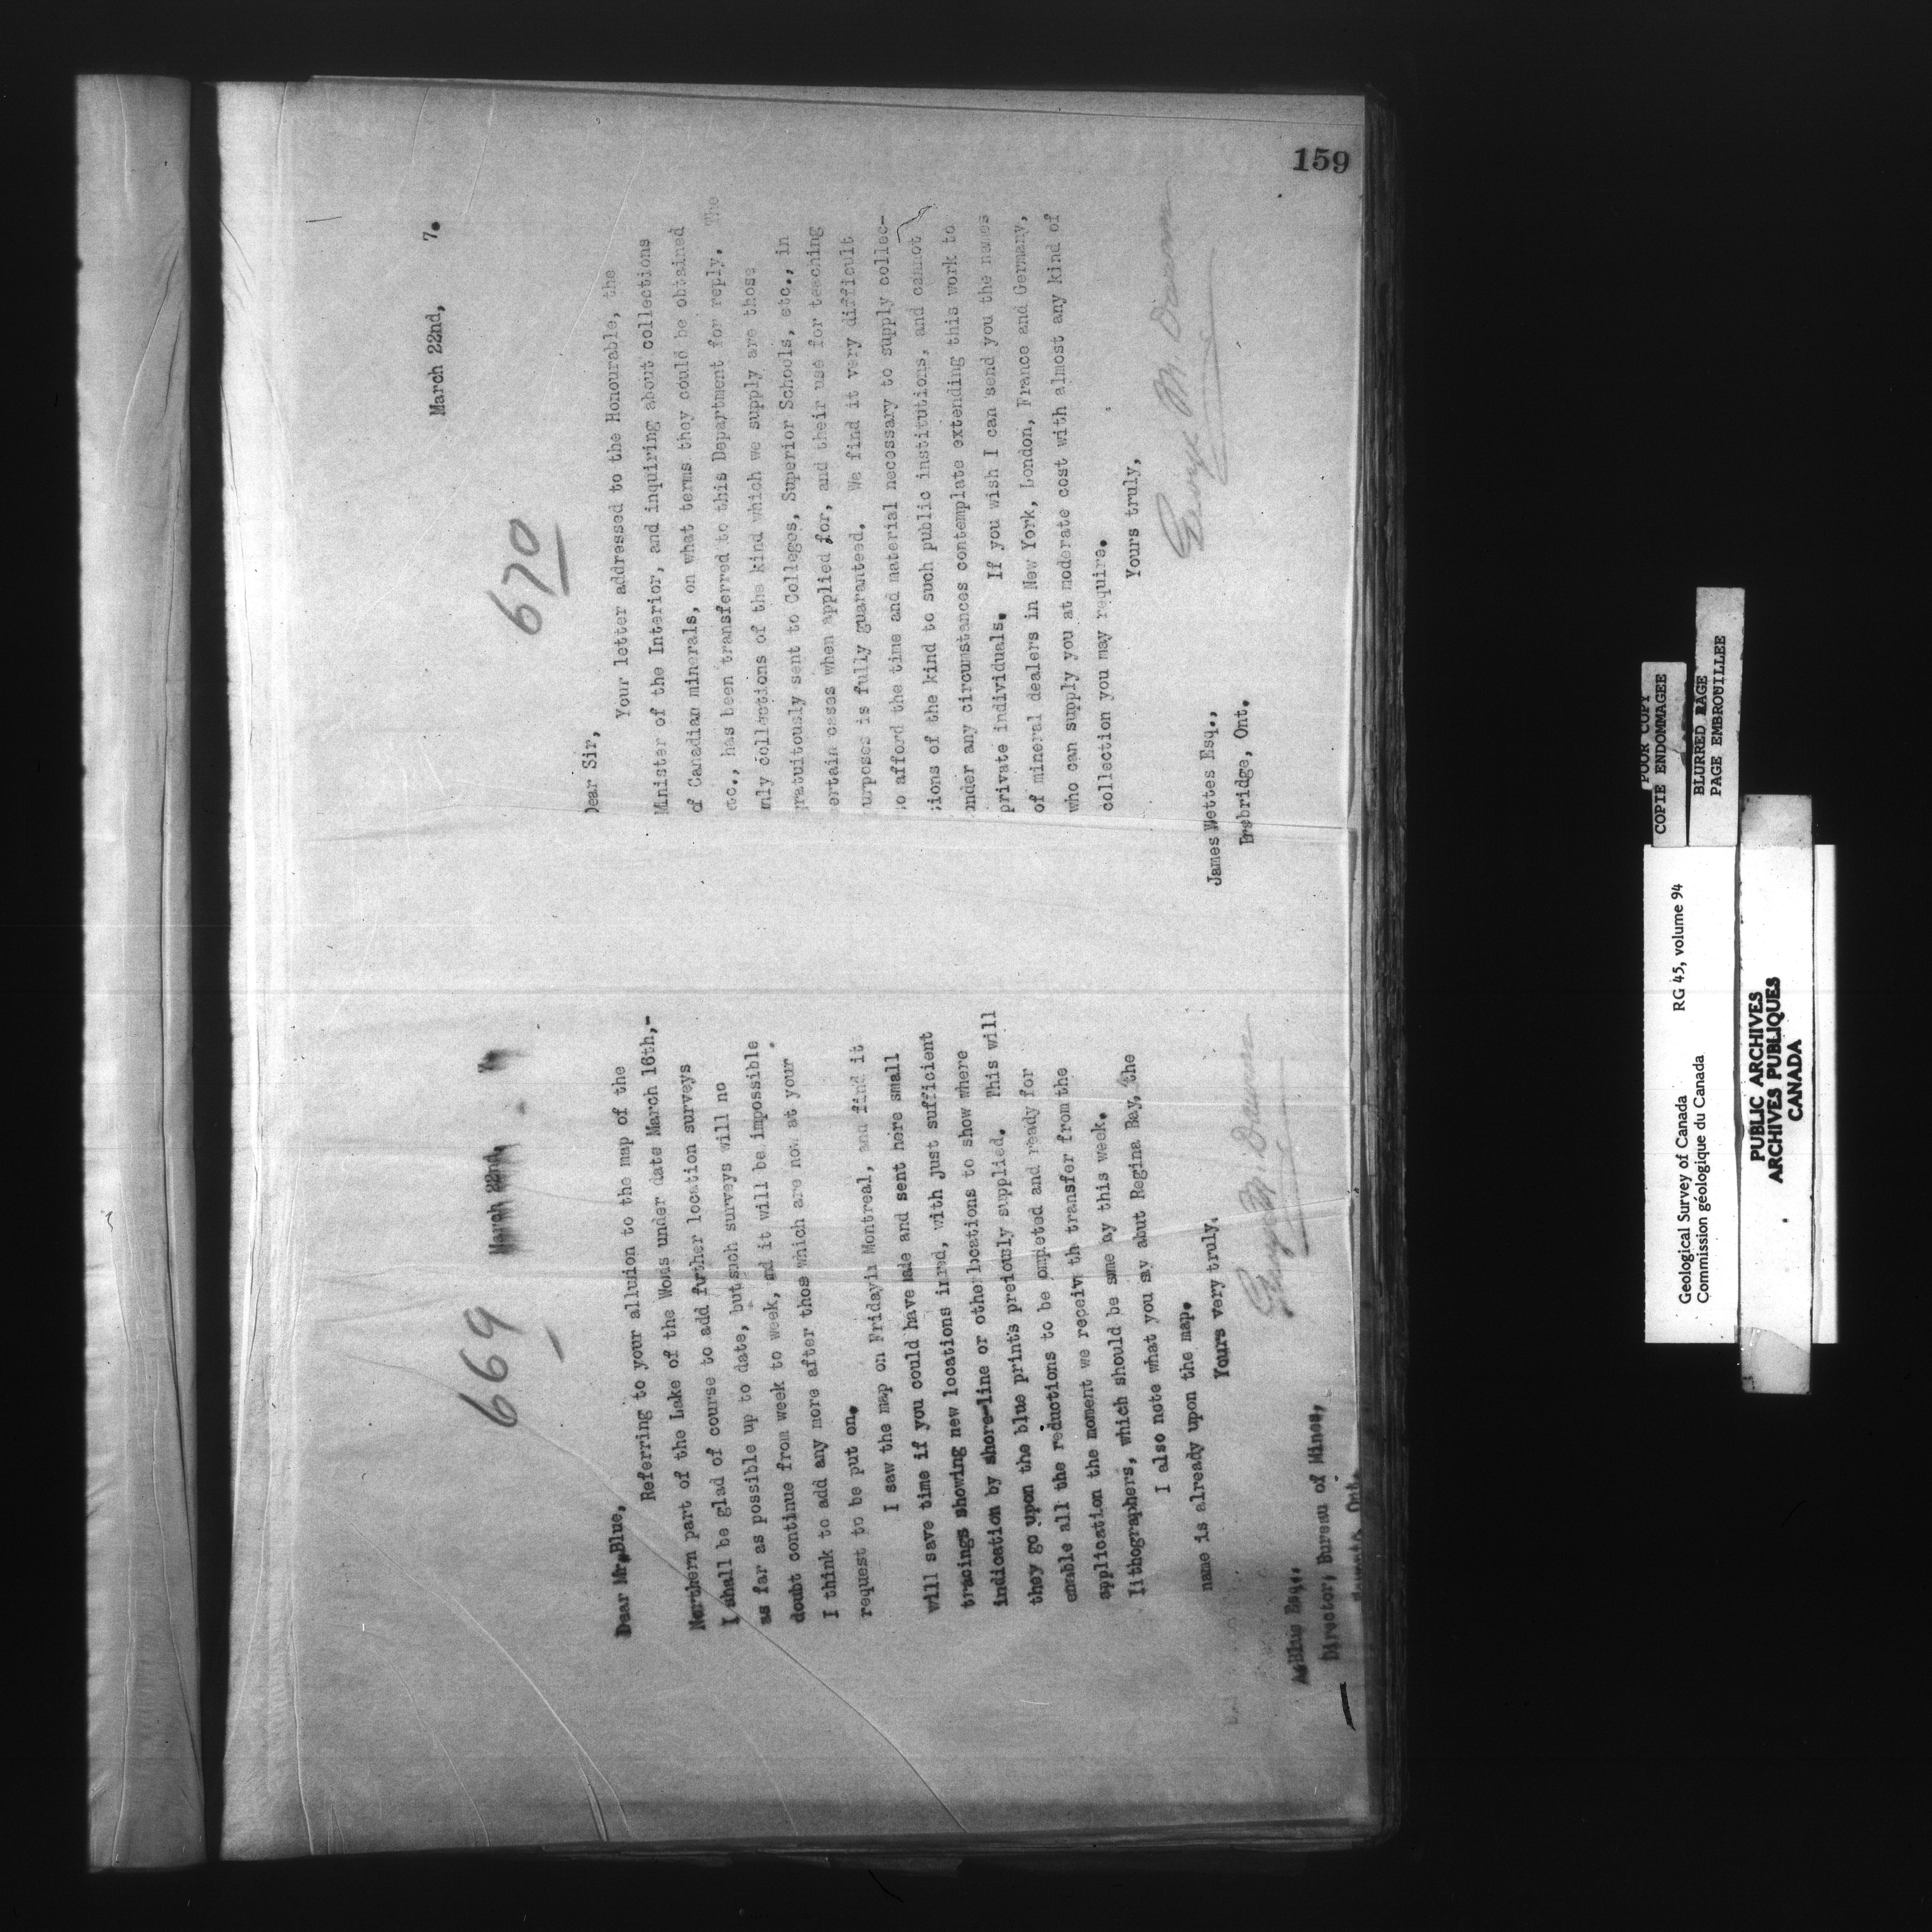 159
669
March 22nd, 7.
Dear Mr. Blue,
Referring to your allusion to the map of the
Northern part of the Lake of the Woods under date March 16th,-
I shall be glad of course to add further location surveys
as far as possible up to date, but such surveys will no
doubt continue from week to week, and it will be impossible
I think to add any more after thos which are now at your
request to be put on.
I saw the map on Friday in Montreal, and find it
will save time if you could have made and sent here small
tracings showing new locations in red, with just sufficient
indication by shore-line or other locations to show where
they go upon the blue prints preiously supplied. This will
enable all the reductions to be ompleted and ready for
application the moment we receiv th transfer from the
lithographers, which should be sme ay this week.
I also note what you say abut Regina Bay, the
name is already upon the map.
Yours very truly,
George M. Dawson
A. Blue Esq.,
Director, Bureau of Mines,
Ont.
670
March 22nd, 7.
Dear Sir,
Your letter addressed to the Honourable, the
Minister of the Interior, and inquiring about collections
of Canadian minerals, on what terms they could be obtained
etc., has been transferred to this Department for reply. The
nly collections of the kind which we supply are those
gratuitously sent to Colleges, Superior Schools, etc., in
certain cases when applied for, and their use for teaching
purposes is fully guaranteed. We find it very difficult
to afford the time and material necessary to supply collec-
tions of the kind to such public institutions, and cannot
under any circumstances contemplate extending this work to
private individuals. If you wish I can send you the names
of mineral dealers in New York, London, France and Germany,
who can supply you at moderate cost with almost any kind of
collection you may require.
Yours truly,
George M. Dawson
James Wettes Esq.,
bridge, Ont.
POOR COPY
COPIE ENDOMMAGEE
BLURED PAGE
PAGE EMBROUILLEE
Geological Survey of Canada RG 45, volume 94
Commission géologique du Canada
PUBLIC ARCHIVES
ARCHIVES PUBLIQUES
CANADA